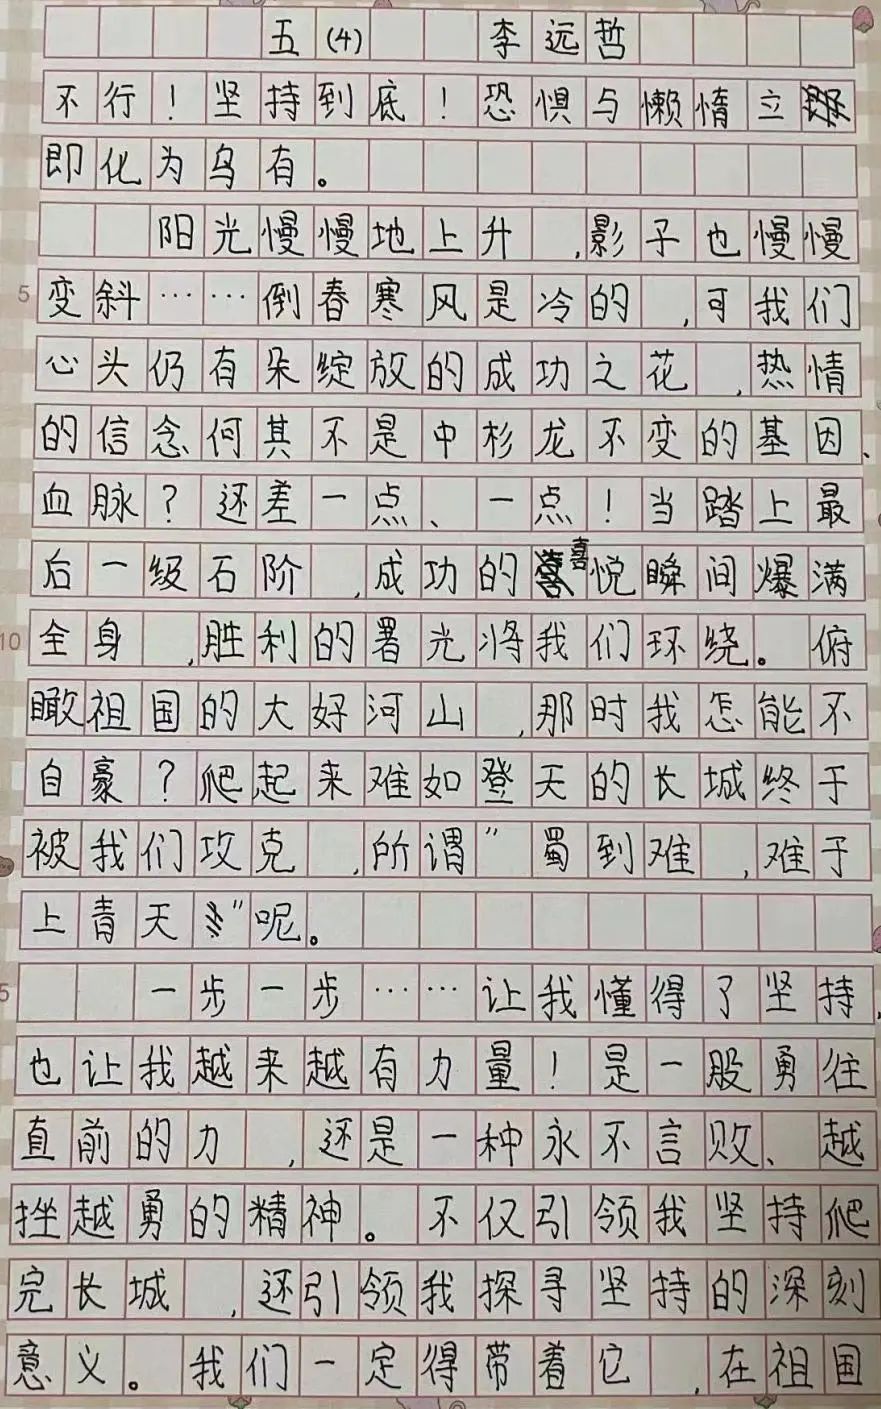 五(4) 李远哲
不行！坚持到底！恐惧与懒惰立
即化为乌有。
阳光慢慢地上升,影子也慢慢
5 变斜……倒春寒风是冷的,可我们
心头仍有朵绽放的成功之花,热情
的信念何其不是中杉龙不变的基因、
血脉？还差一点、一点！当踏上最
后一级石阶,成功的喜悦瞬间爆满
10 全身,胜利的署光将我们环绕。俯
瞰祖国的大好河山,那时我怎能不
自豪？爬起来难如登天的长城终于
被我们攻克,所谓"蜀到难,难于
上青天"呢。
5 一步一步……让我懂得了坚持,
也让我越来越有力量！是一股勇往
直前的力,还是一种永不言败、越
挫越勇的精神。不仅引领我坚持爬
完长城,还引领我探寻坚持的深刻
意义。我们一定得带着它,在祖国